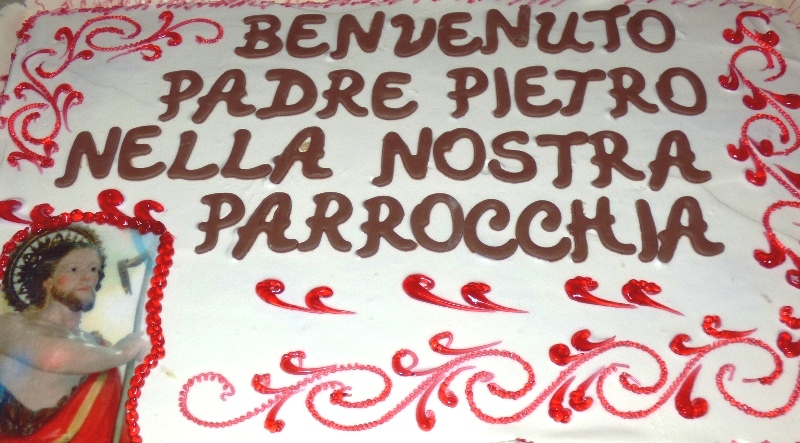 BENVENUTO
PADRE PIETRO
NELLA NOSTRA
PARROCCHIA